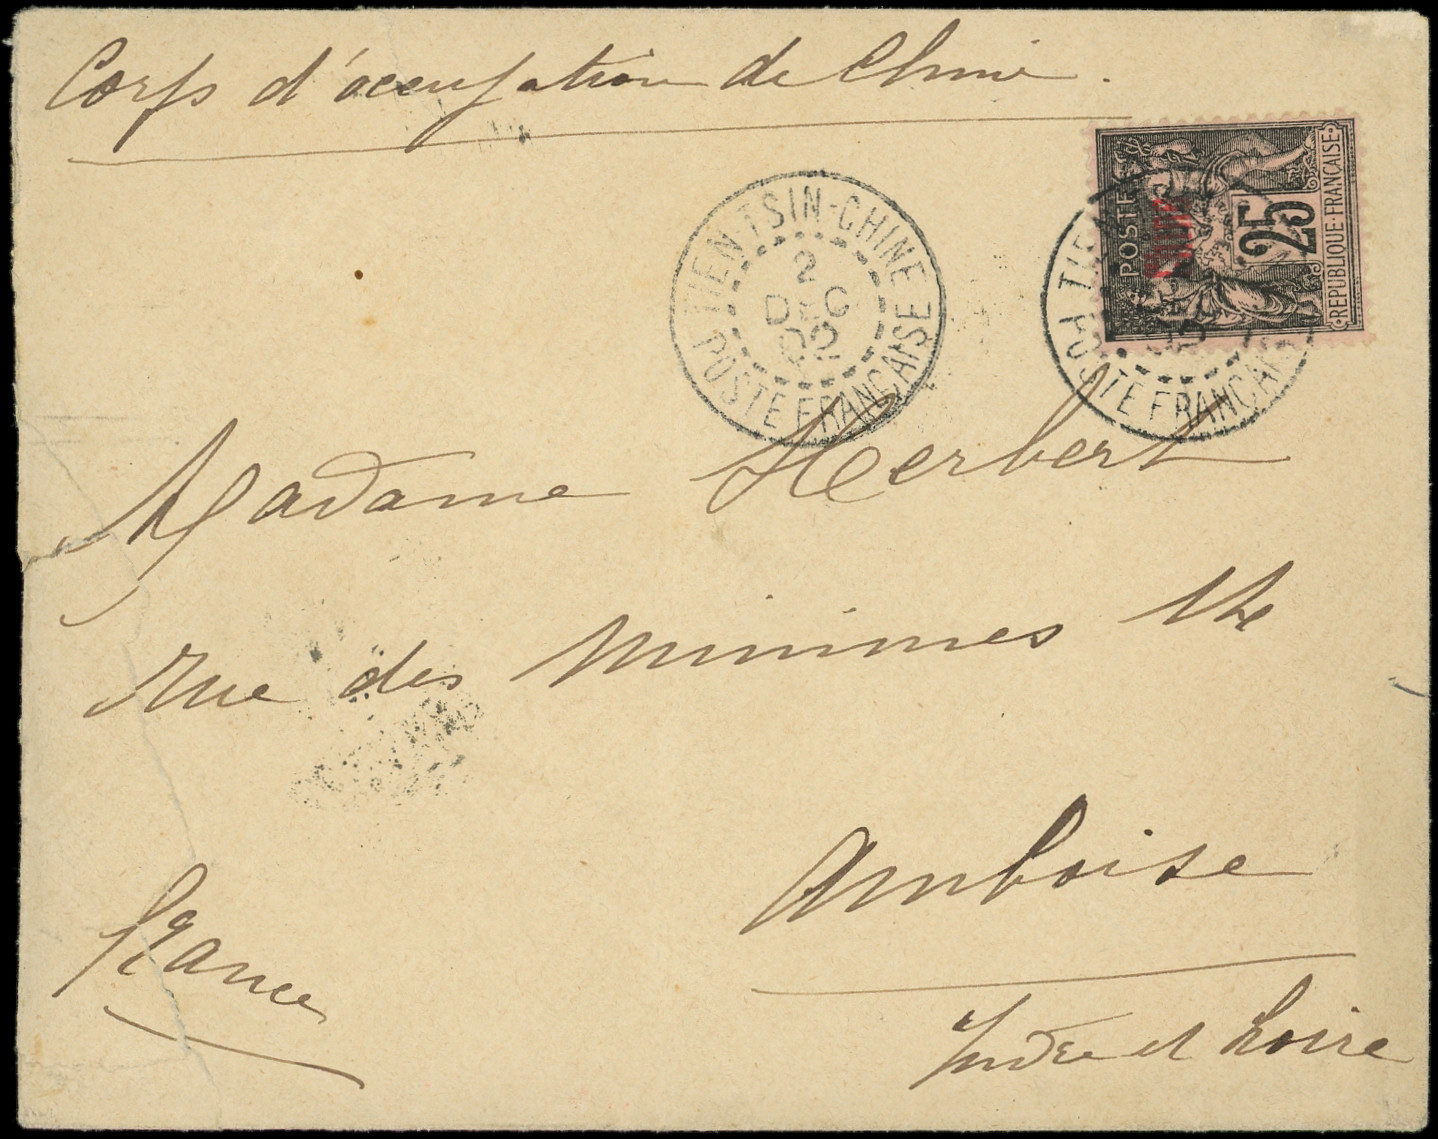 Corps d'occupation de Chine.
TIENTSIN-CHINE
2
DEC
02
POSTE FRANÇAISE
POSTES
CHINE
25
REPUBLIQUE FRANÇAISE
POSTE FRANÇAISE
Madame Herbert
rue des Minimes
Amboise
France
Indre et Loire